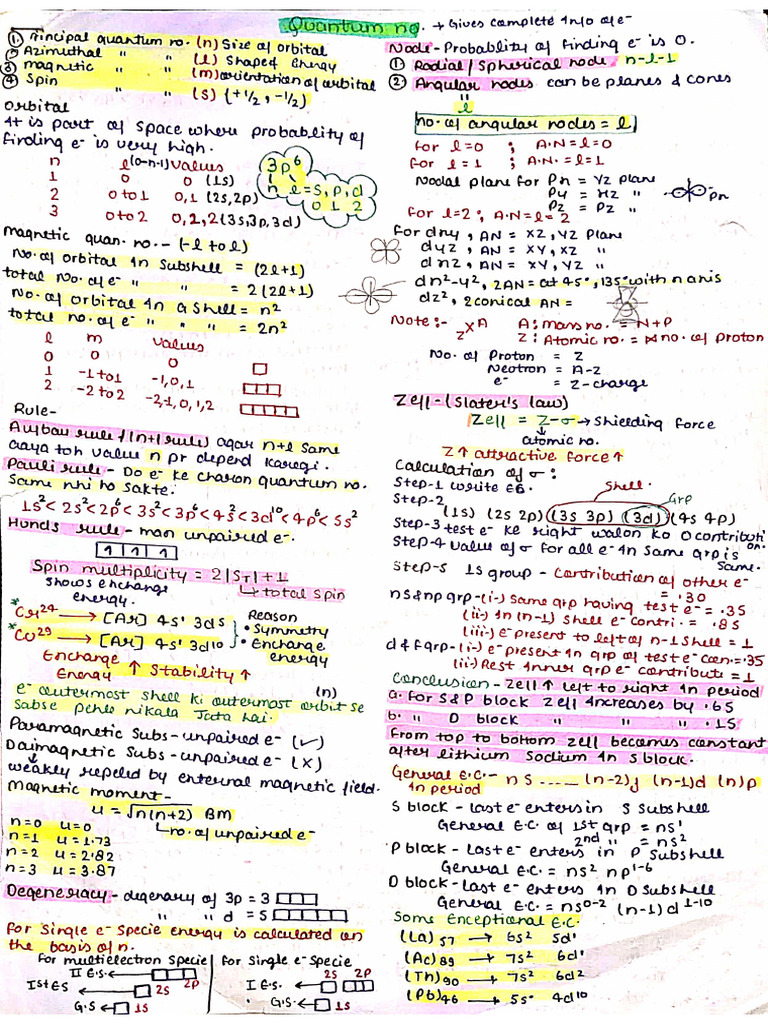 Quantum no. → Gives complete info of e⁻
① Principal quantum no. (n) Size of orbital
② Azimuthal " " (l) Shape & Energy
③ magnetic " " (m) orientation of orbital
④ Spin " " (s) (+1/2, -1/2)
Orbital
It is part of space where probablity of
finding e⁻ is very high.
n l(0-n-1) values
1 0 0 (1s)
2 0 to 1 0,1 (2s,2p)
3 0 to 2 0,1,2 (3s,3p,3d)
3p⁶
n l = s, p, d
0 1 2
magnetic quan. no. - (-l to l)
No. of orbital in Subshell = (2l+1)
total No. of e⁻ " " = 2(2l+1)
No. of orbital in a Shell = n²
total no. of e⁻ " " " = 2n²
l m values
0 0 0
1 -1 to 1 -1,0,1
2 -2 to 2 -2,-1,0,1,2
Rule-
Aufbau rule / (n+l rule) agar n+l same
aaya toh value n pr depend karegi.
Pauli rule - Do e⁻ ke charon quantum no.
Same nhi ho sakte.
1s² < 2s² < 2p⁶ < 3s² < 3p⁶ < 4s² < 3d¹⁰ < 4p⁶ < 5s²
Hunds rule - max unpaired e⁻.
1 1 1
Spin multiplicity = 2|S_T| + 1
shows exchange energy. ↳ total spin
*Cr²⁴ → [Ar] 4s¹ 3d⁵
*Cu²⁹ → [Ar] 4s¹ 3d¹⁰
Reason
• Symmetry
• Exchange energy
Exchange Energy ↑ Stability ↑
e⁻ outermost shell ki outermost orbit se (n)
Sabse pehle nikala Jata hai.
Paramagnetic Subs - unpaired e⁻ (✓)
Daimagnetic Subs - unpaired e⁻ (X)
↓
weakly repeled by external magnetic field.
Magnetic moment-
u = √n(n+2) BM
↳ no. of unpaired e⁻
n=0 u=0
n=1 u=1.73
n=2 u=2.82
n=3 u=3.87
Degeneracy - degenary of 3p = 3
" " d = 5
For Single e⁻ Specie energy is calculated on
the basis of n.
For multielectron Specie
II E.S. ← 2p
Ist E.S ← 2s
G.S ← 1s
For Single e⁻ Specie
I E.S. ← 2s 2p
G.S. ← 1s
Node - Probablity of finding e⁻ is 0.
① Radial / Spherical node n-l-1
② Angular nodes can be planes & cones
=
l
no. of angular nodes = l
for l=0 ; A.N = l = 0
for l=1 ; A.N. = l = 1
Nodal plane for Px = YZ plane
Py = XZ "
Pz = PZ "
Px
for l=2 ; A.N = l = 2
for dxy, AN = XZ, YZ plane
dyz, AN = XY, XZ "
dxz, AN = XY, YZ "
dx²-y², 2AN = at 45°, 135° with x axis
dz², 2 conical AN =
Note:- zXA A: mass no. = N+P
Z: Atomic no. = no. of Proton
No. of Proton = Z
Neotron = A-Z
e⁻ = Z-charge
Zeff - (Slater's law)
Zeff = Z-σ → Shielding force
↓
atomic no.
Z↑ attractive force ↑
Calculation of σ:
Step-1 write EC.
Step-2
Shell. Grp
(1s) (2s 2p) (3s 3p) (3d) (4s 4p)
Step-3 test e⁻ ke right walon ko 0 contribution.
Step-4 Value of σ for all e⁻ in same grp is Same.
Step-5 1s group - contribution of other e⁻ = .30
ns & np grp - (i-) Same grp having test e⁻ = .35
(ii-) In (n-1) shell e⁻ contri. = .85
(iii-) e⁻ present to left of n-1 shell = 1
d & f grp - (i-) e⁻ present in grp of test e⁻ con. = .35
(ii-) Rest inner grp e⁻ contribute = 1
Conclusion - Zeff ↑ left to right in period
a. for S & P block Zeff increases by .65
b. " D block " " " .15
From top to bottom Zeff becomes constant
after lithium Sodium in S block.
General E.C. - ns ..... (n-2)f (n-1)d (n)p
in period
S block - last e⁻ enters in S subshell
General E.C. of 1st grp = ns¹
2nd " = ns²
P block - last e⁻ enters in P subshell
General E.C. = ns² np¹⁻⁶
D block - last e⁻ enters in D subshell
General E.C. = ns⁰⁻² (n-1)d¹⁻¹⁰
Some Exceptional E.C.
(La)57 → 6s² 5d¹
(Ac)89 → 7s² 6d¹
(Th)90 → 7s² 6d²
(Pb)46 → 5s° 4d¹⁰